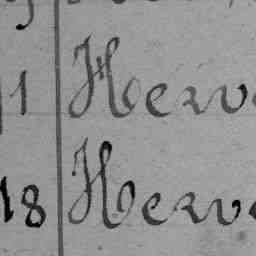 1 Herv
18 Herv